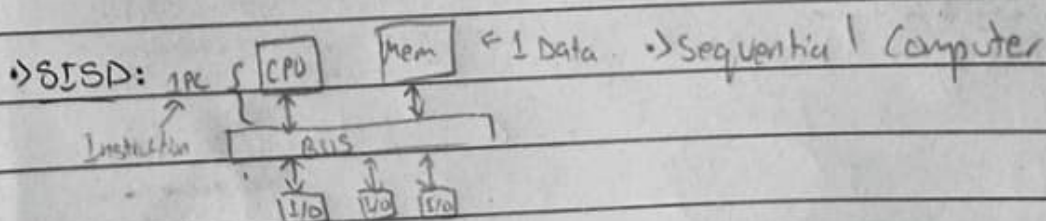 •) SISD: 1PC { CPU Mem ← 1 Data •) Sequential Computer
Instruction BUS
I/O I/O I/O